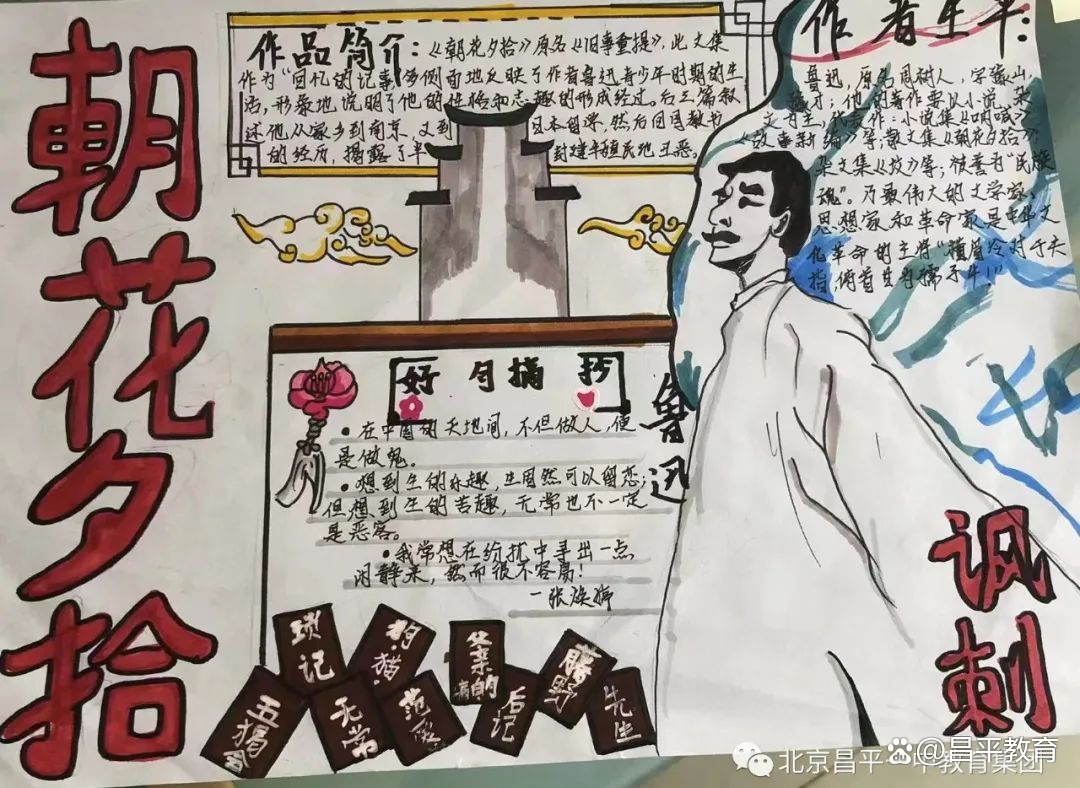 朝花夕拾
作品简介：《朝花夕拾》原名《旧事重提》，此文集
作为“回忆的记事”多侧面地反映了作者鲁迅青少年时期的生
活，形象地说明了他的性格和志趣的形成经过。后三篇叙
述他从家乡到南京，又到日本留学，然后回国教书
的经历，揭露了半封建半殖民地丑恶。
作者生平：
鲁迅，原名周树人，字豫山，
豫才；他的著作要以小说、杂
文为主，代表作：小说集《呐喊》
《故事新编》等；散文集《朝花夕拾》
杂文集《坟》等；被誉为“民族
魂”。乃致伟大的文学家、
思想家和革命家是中华文
化革命的主将“横眉冷对千夫
指，俯首甘为孺子牛！”
好句摘抄
·在中国的天地间，不但做人，便
是做鬼。
·想到生的乐趣，生固然可以留恋；
但想到生的苦趣，无常也不一定
是恶客。
·我常想在纷扰中寻出一点
闲静来，然而很不容易！
鲁迅
琐记
狗·猫
父亲的病
藤野
先生
五猖会
无常
范爱
后记
讽刺
北京昌平一中教育集团
@昌平教育